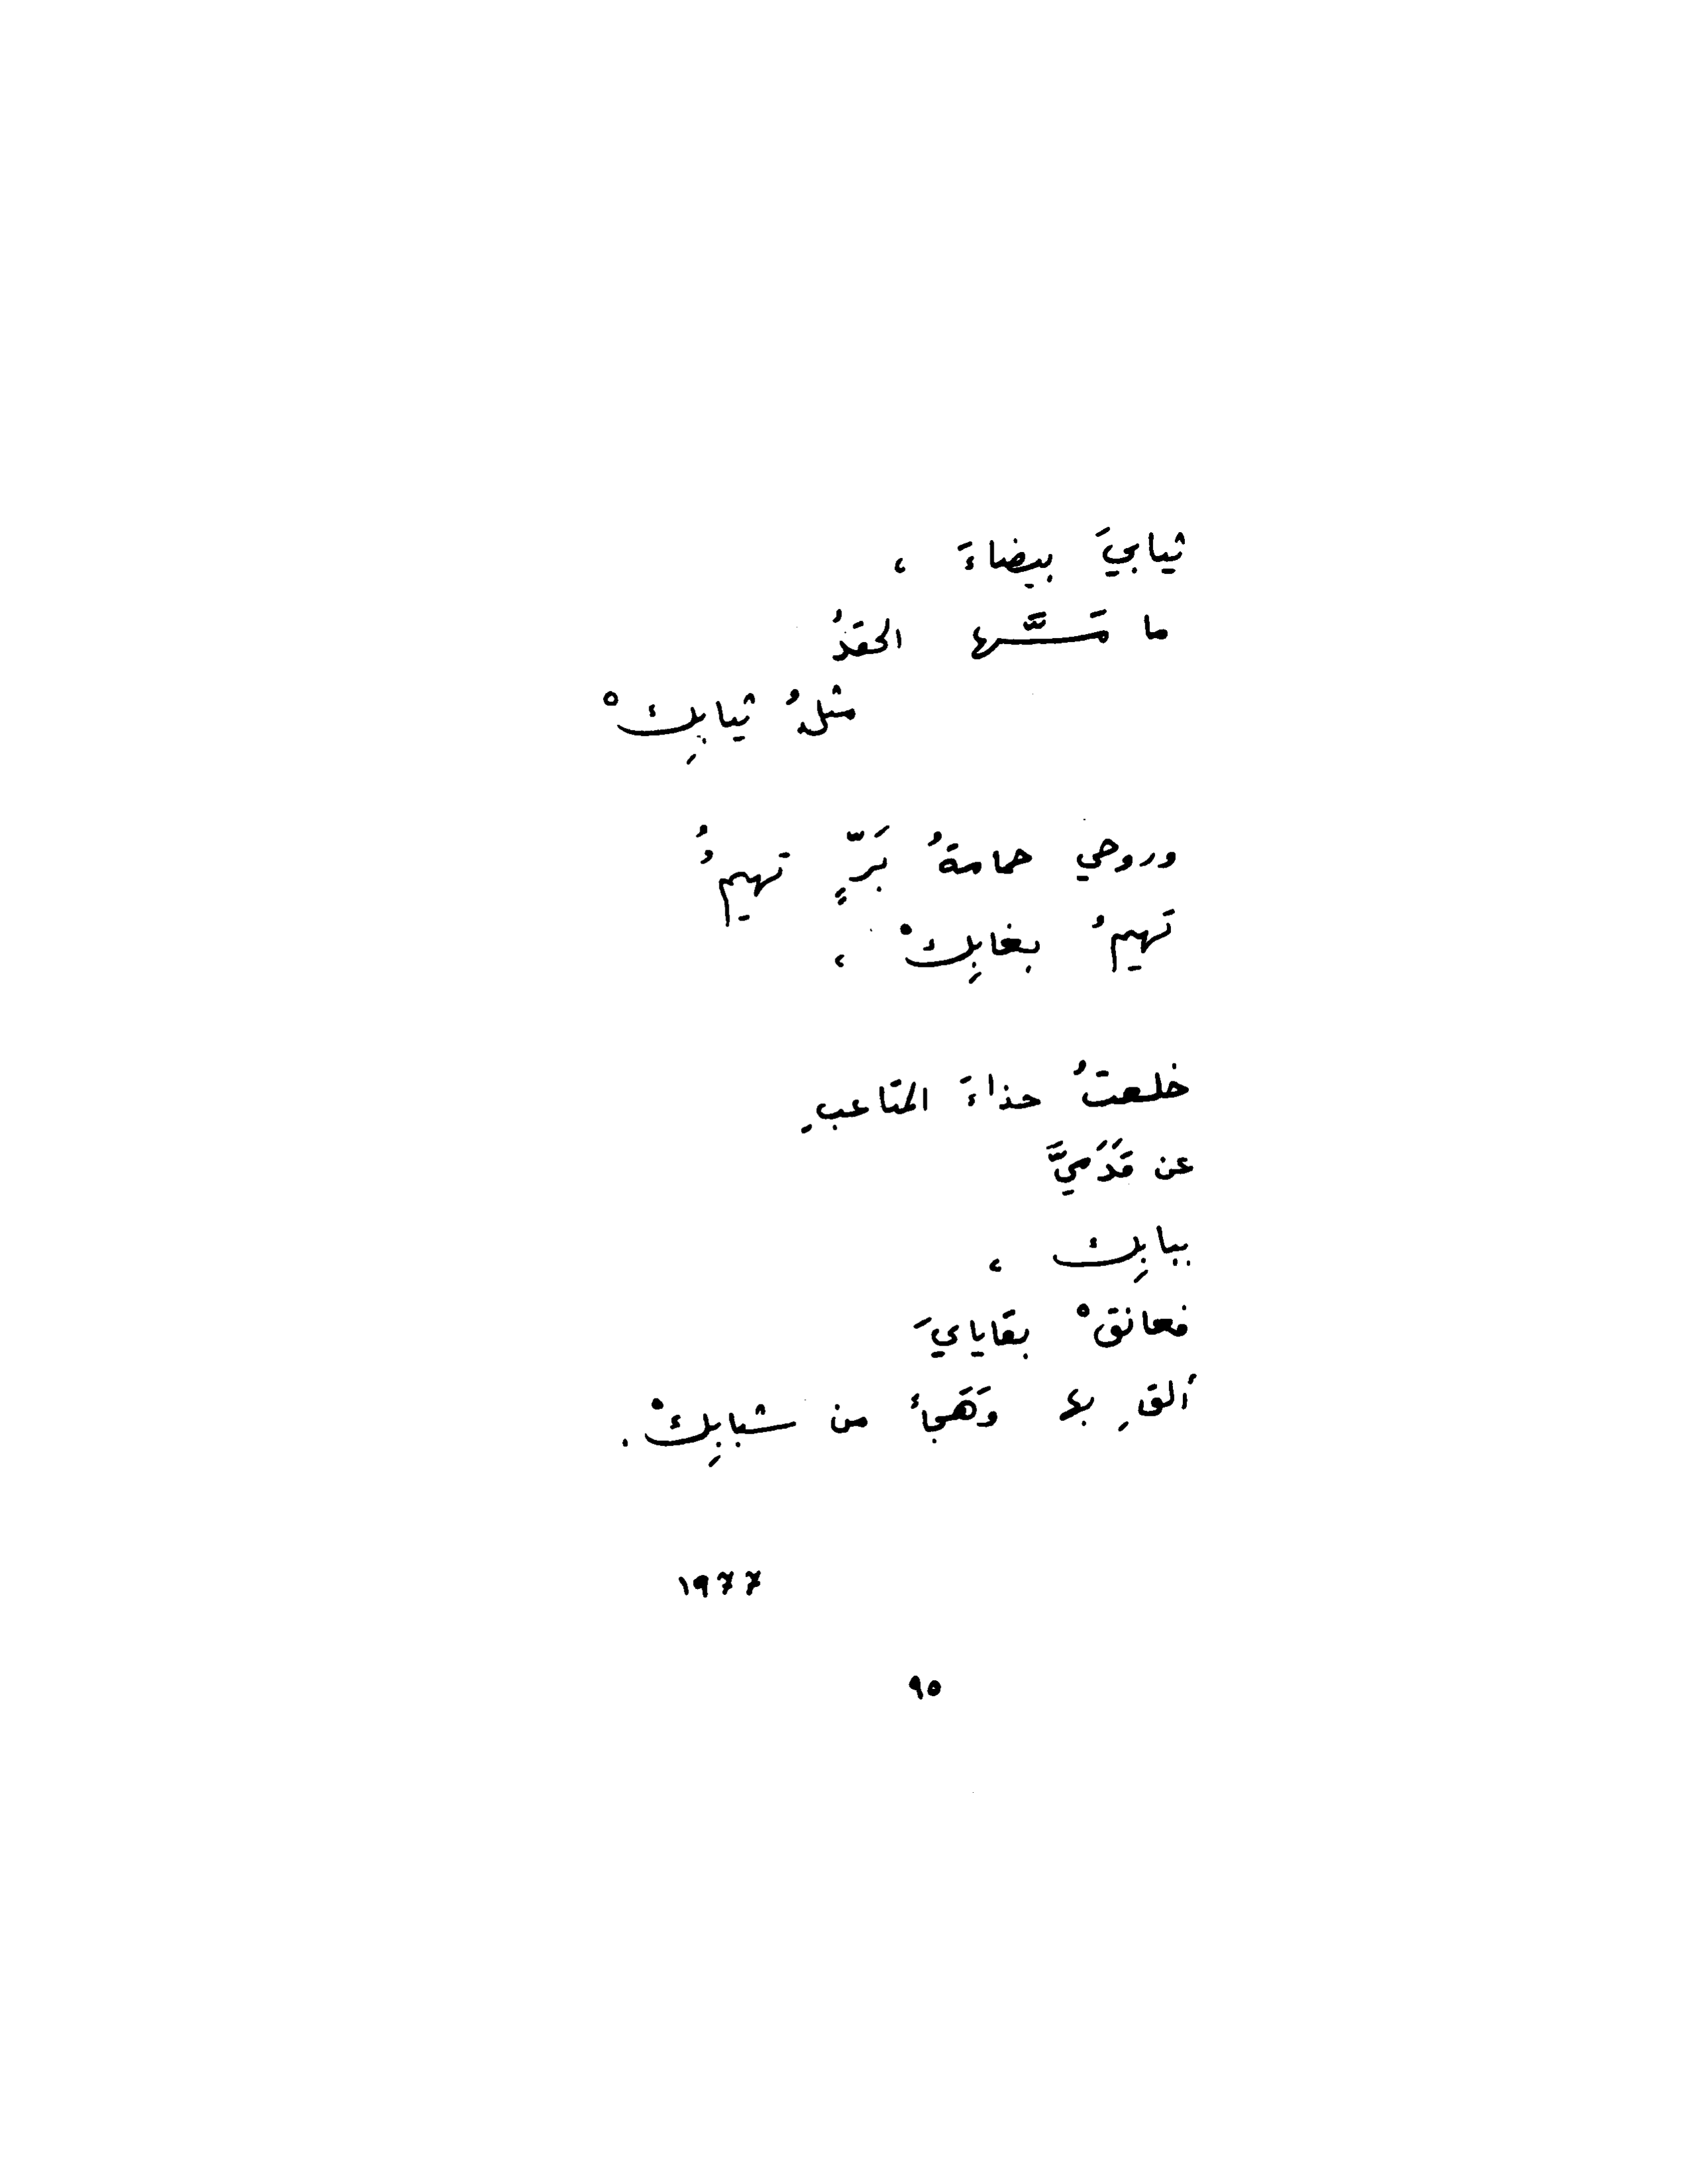 ثيابيَ بيضاءَ ،
ما مَسَّها الحقدُ
مثلُ ثيابِكْ
وروحي حمامةُ بَرٍّ تهيمُ
تَهيمُ بغابِكْ ،
خلعتُ حذاءَ المتاعبِ
عن قَدَميَّ
ببابِك ،
فعانقْ بقايايَ
ألقِ بي وَهَجاً من شبابِكْ .
١٩٧٧
٩٥